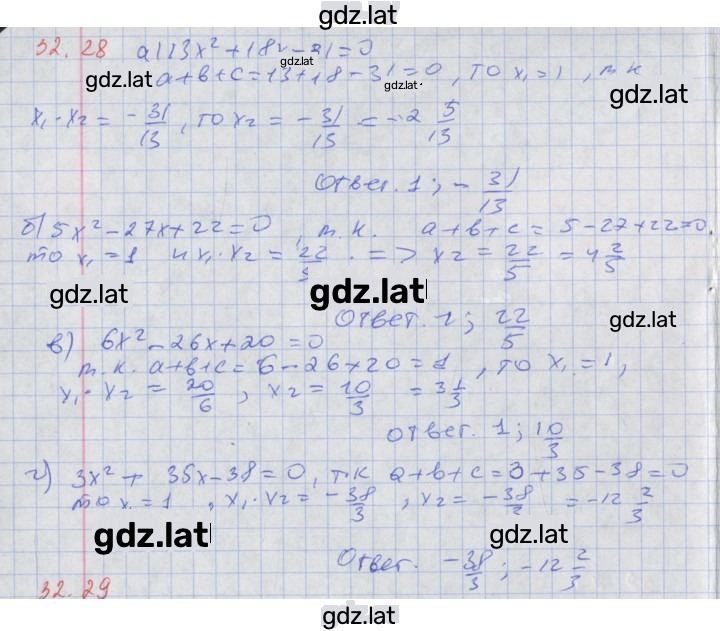 gdz.lat
32.28 а) 13x² + 18x - 31 = 0
gdz.lat
gdz.lat а+в+с = 13+18-31 = 0, то x₁ = 1, т.к
gdz.lat
gdz.lat
x₁·x₂ = -31/13, то x₂ = -31/13 = -2 5/13
Ответ. 1; -31/13
б) 5x² - 27x + 22 = 0, т.к. а+в+с = 5-27+22=0,
то x₁ = 1 и x₁·x₂ = 22/5 . => x₂ = 22/5 = 4 2/5
gdz.lat gdz.lat gdz.lat
Ответ. 1; 22/5
в) 6x² - 26x + 20 = 0
т.к. а+в+с = 6-26+20 = , то x₁ = 1,
x₁·x₂ = 20/6, x₂ = 10/3 = 3 1/3
ответ. 1; 10/3
г) 3x² + 35x - 38 = 0, т.к а+в+с = 3+35-38 = 0
то x₁ = 1, x₁·x₂ = -38/3, x₂ = -38/ = -12 2/3
gdz.lat gdz.lat
Ответ. -38/3; -12 2/3
32.29
gdz.lat